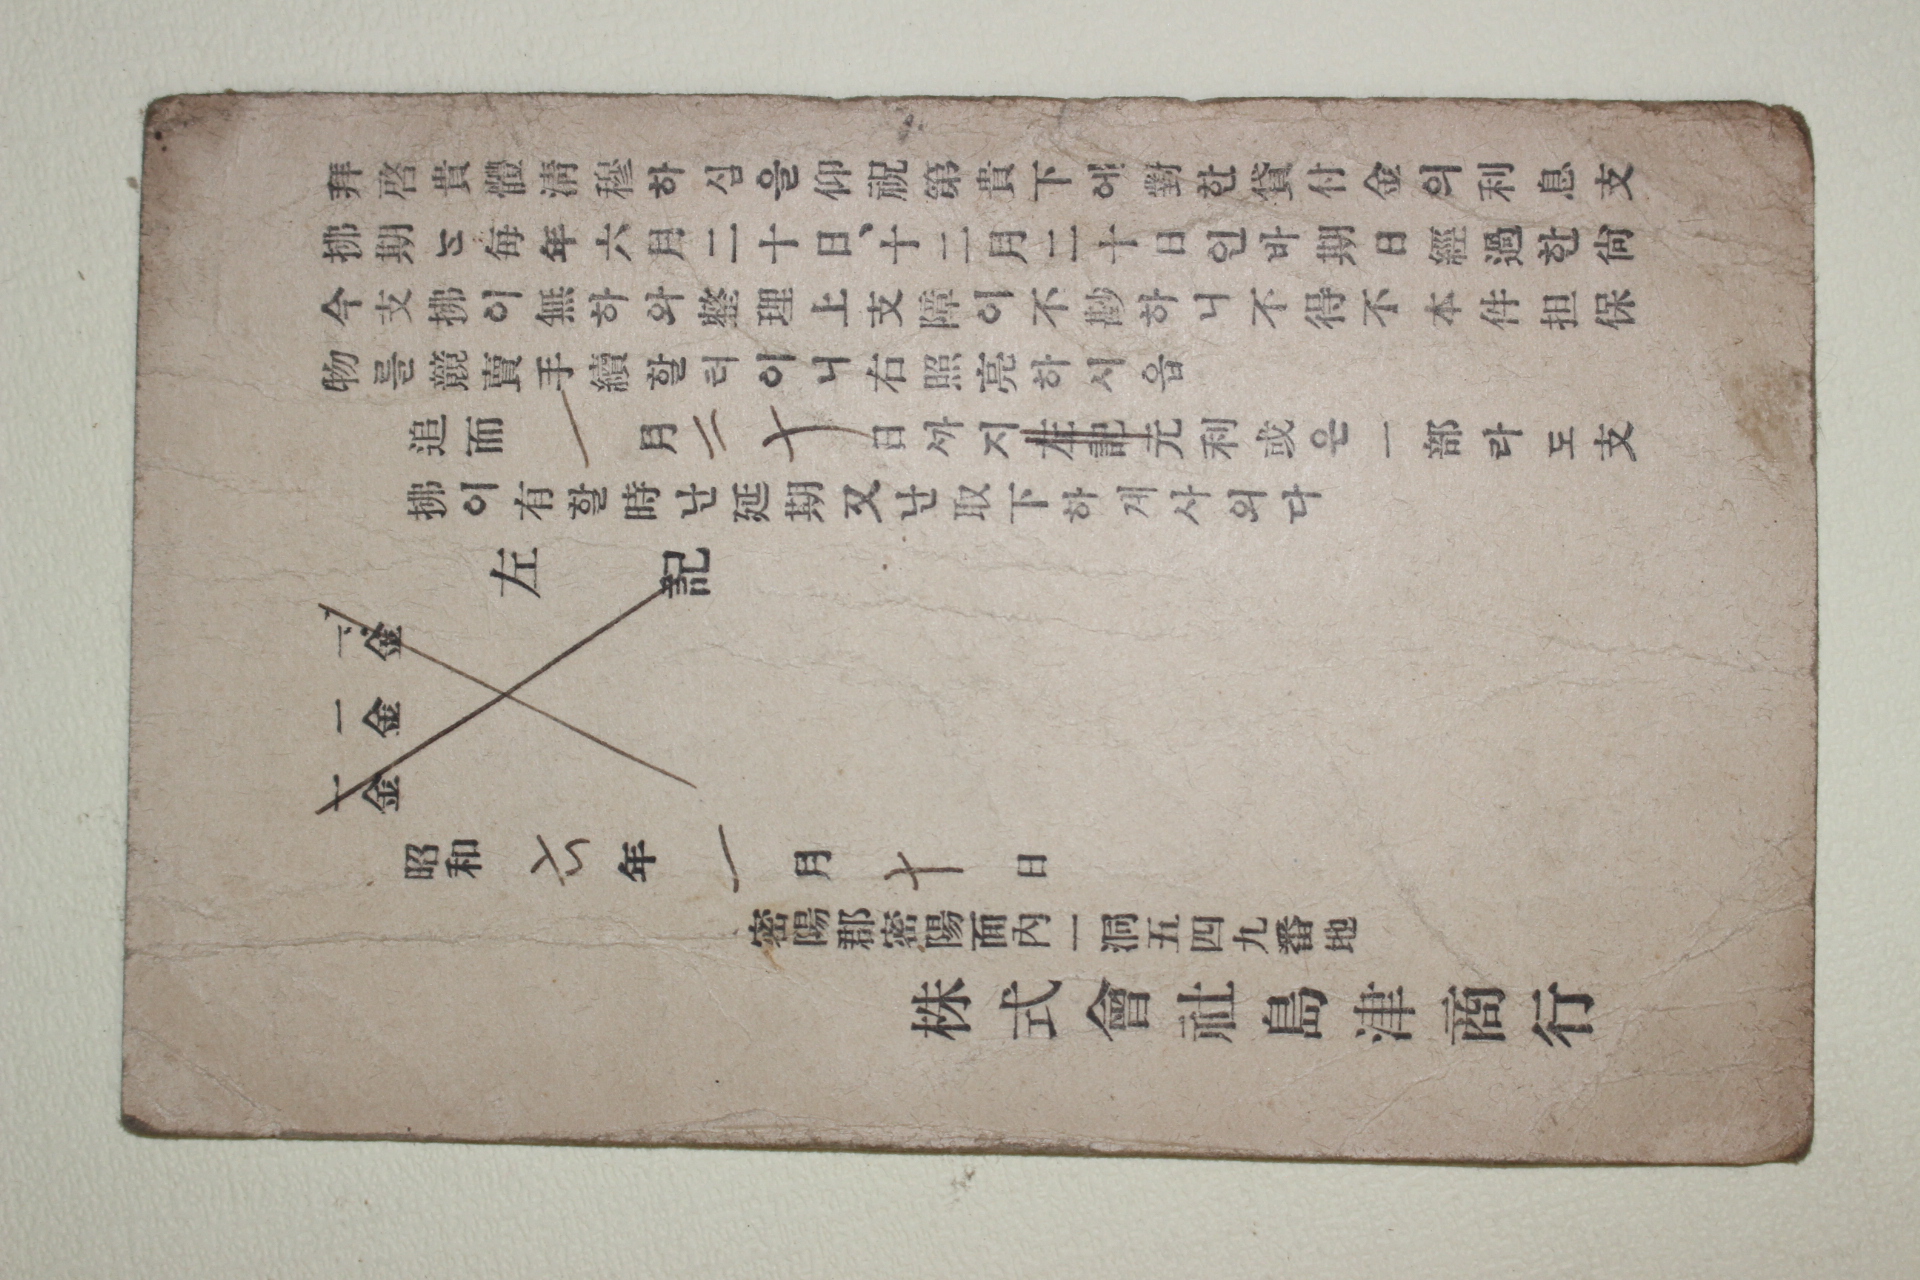 拜啓貴體淸穆하심을仰祝第貴下에對한貸付金의利息支
拂期는每年六月二十日、十二月二十日인바期日經過한尙
今支拂이無하와整理上支障이不尠하니不得不本件担保
物를競賣手續할터이니右照亮하시옵
追而一月二十日까지左記元利或은一部라도支
拂이有할時난延期又난取下하게사외다
左記
一金
一金
一金
昭和六年一月十日
密陽郡密陽面內一洞五四九番地
株式會社島津商行